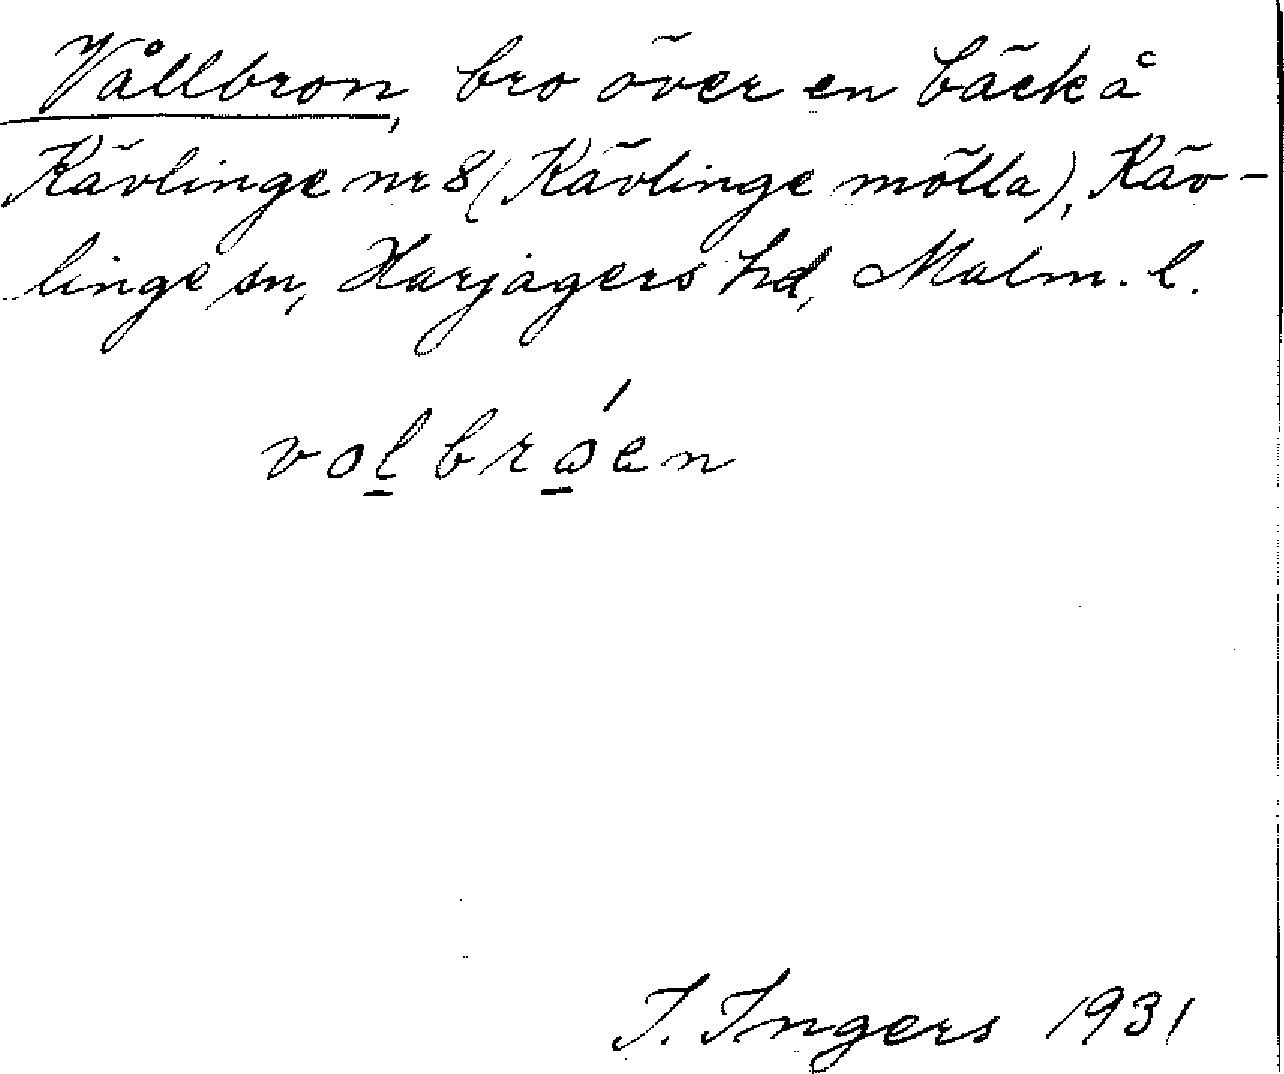 Vållbron, bro över en bäck å
Kävlinge nr 8 (Kävlinge mölla), Käv-
linge sn, Harjagers hd, Malm. l.
vol̲brǫ́en
I. Ingers 1931